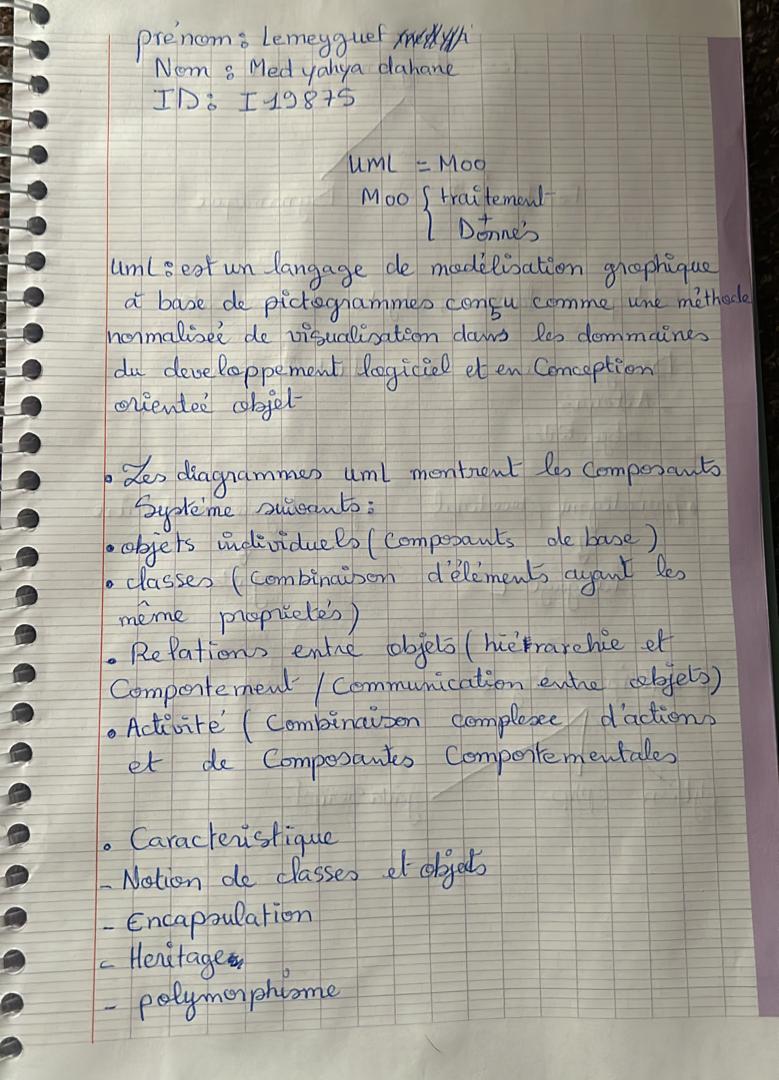 prénom : Lemeyguef
Nom : Med yahya dahane
ID : I19875
UML = Moo
Moo { traitement
+
Donnés
Uml : est un langage de modélisation graphique
à base de pictogrammes conçu comme une méthode
normaliseé de visualisation dans les dommaines
du developpement logiciel et en Conception
orienteé objet
• Les diagrammes uml montrent les Composants
Système suivants :
• objets individuels (Composants de base)
• classes (combinaison d'éléments ayant les
même proprietés)
• Relations entre objets (hiérarchie et
Comportement / Communication entre objets)
• Activité (Combinaison complexe d'actions
et de Composantes Comportementales
• Caracteristique
- Notion de classes et objets
- Encapsulation
- Heritage
- polymorphisme